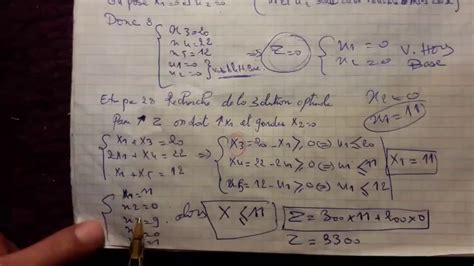 On pose x1=0 et x2=0
Donc 8
{ x3=20
x4=22
x5=12
x1=0
x2=0 } V.H.Base ⇒ Z=0 { x1=0
x2=0 V. Hors Base
Etape 2: Recherche de la solution optimale
Pour ↑ Z on doit ↑ x1 et garder x2=0
x2=0
x1=11
{ x1+x3=20
2x1+x4=22
x1+x5=12
⇒ { x3=20-x1≥0 ⇒ x1≤20
x4=22-2x1≥0 ⇒ x1≤11
x5=12-x1≥0 ⇒ x1≤12
x1=11
{ x1=11
x2=0
x3=9
x4=0
x5=1
alors X≤11
Z=300×11+200×0
Z=3300